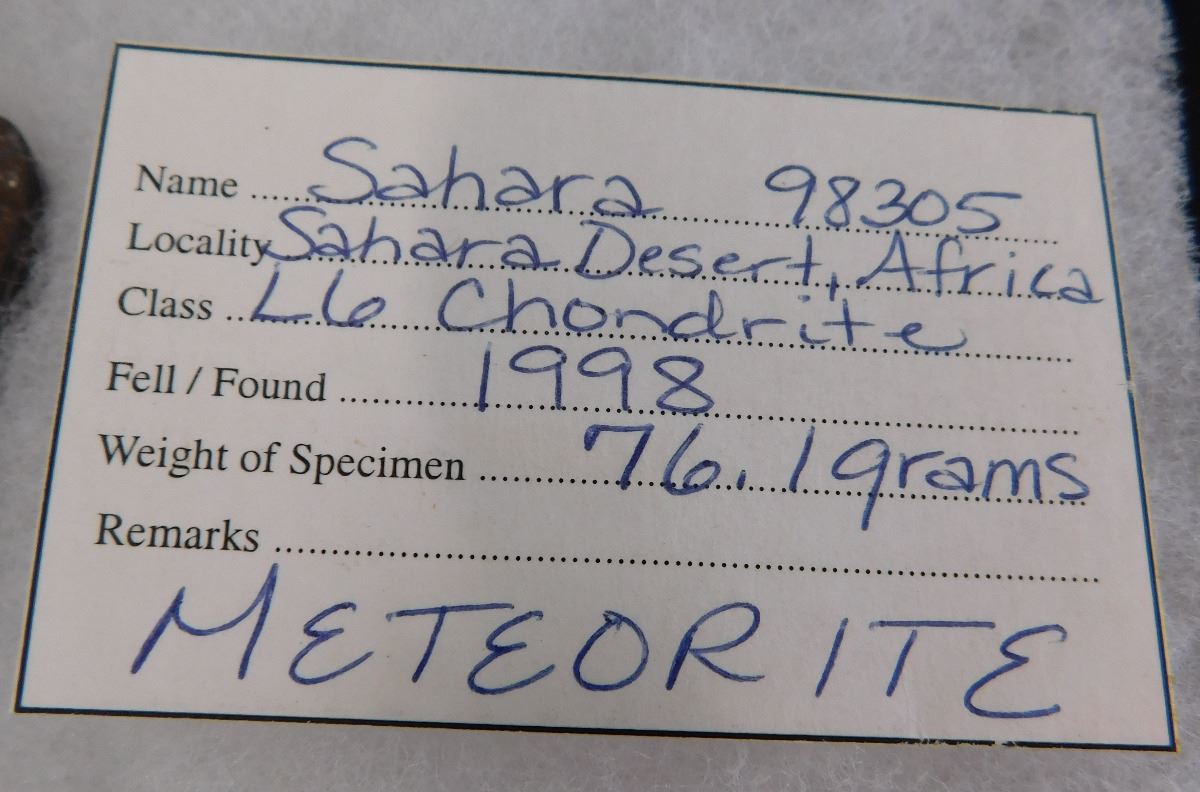 Name ..... Sahara 98305
Locality Sahara Desert, Africa
Class .. L6 Chondrite
Fell / Found ..... 1998
Weight of Specimen ..... 76.1 grams
Remarks .....
METEORITE